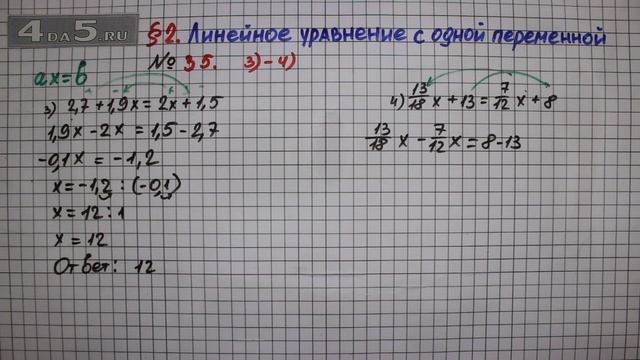 4DA5.RU
§2. Линейное уравнение с одной переменной
№ 35. 3)-4)
ax=b
3) 2,7+1,9x=2x+1,5
1,9x-2x=1,5-2,7
-0,1x=-1,2
x=-1,2:(-0,1)
x=12:1
x=12
Ответ: 12
4) 13/18 x+13=7/12 x+8
13/18 x-7/12 x=8-13